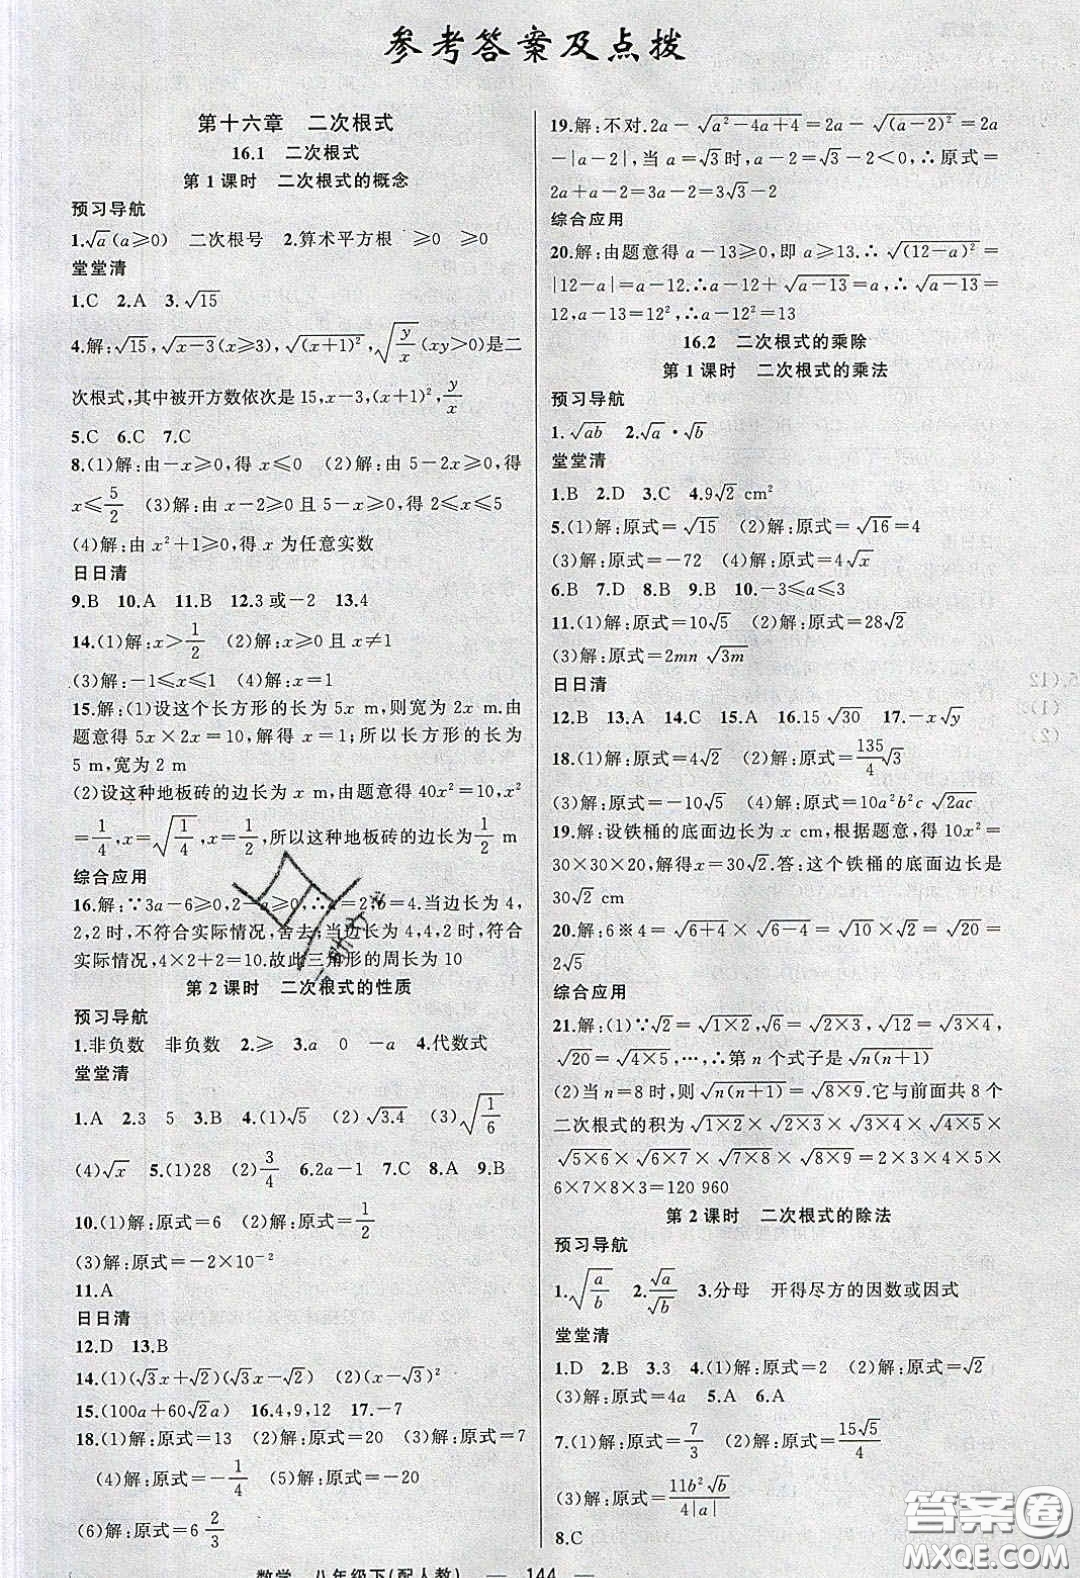 参考答案及点拨
第十六章 二次根式
16.1 二次根式
第1课时 二次根式的概念
预习导航
1.√a(a≥0) 二次根号 2.算术平方根 ≥0 ≥0
堂堂清
1.C 2.A 3.√15
4.解:√15,√(x-3)(x≥3),√((x+1)²),√(y/x)(xy>0)是二
次根式,其中被开方数依次是15,x-3,(x+1)²,y/x
5.C 6.C 7.C
8.(1)解:由-x≥0,得x≤0 (2)解:由5-2x≥0,得
x≤5/2 (3)解:由x-2≥0且5-x≥0,得2≤x≤5
(4)解:由x²+1≥0,得x为任意实数
日日清
9.B 10.A 11.B 12.3或-2 13.4
14.(1)解:x>1/2 (2)解:x≥0且x≠1
(3)解:-1≤x≤1 (4)解:x=1
15.解:(1)设这个长方形的长为5x m,则宽为2x m.由
题意得5x×2x=10,解得x=1;所以长方形的长为
5 m,宽为2 m
(2)设这种地板砖的边长为x m,由题意得40x²=10,x²
=1/4,x=√(1/4)=1/2,所以这种地板砖的边长为1/2 m
综合应用
16.解:∵3a-6≥0,2-a≥0,∴a=2,b=4.当边长为4,
2,2时,不符合实际情况,舍去;当边长为4,4,2时,符合
实际情况,4×2+2=10.故此三角形的周长为10
第2课时 二次根式的性质
预习导航
1.非负数 非负数 2.≥ 3.a 0 -a 4.代数式
堂堂清
1.A 2.3 5 3.B 4.(1)√5 (2)√3.4 (3)√(1/6)
(4)√x 5.(1)28 (2)3/4 6.2a-1 7.C 8.A 9.B
10.(1)解:原式=6 (2)解:原式=1/2
(3)解:原式=-2×10⁻²
11.A
日日清
12.D 13.B
14.(1)(√3x+√2)(√3x-√2) (2)(x-√2)²
15.(100a+60√2a) 16.4,9,12 17.-7
18.(1)解:原式=13 (2)解:原式=20 (3)解:原式=7
(4)解:原式=-1/4 (5)解:原式=-20
(6)解:原式=6 2/3
19.解:不对.2a-√(a²-4a+4)=2a-√((a-2)²)=2a
-|a-2|,当a=√3时,a-2=√3-2<0,∴原式=
2a+a-2=3a-2=3√3-2
综合应用
20.解:由题意得a-13≥0,即a≥13.∴√((12-a)²)=
|12-a|=a-12.∴a-12+√(a-13)=a,∴√(a-13)=
12,a-13=12²,∴a-12²=13
16.2 二次根式的乘除
第1课时 二次根式的乘法
预习导航
1.√(ab) 2.√a·√b
堂堂清
1.B 2.D 3.C 4.9√2 cm²
5.(1)解:原式=√15 (2)解:原式=√16=4
(3)解:原式=-72 (4)解:原式=4√x
6.B 7.D 8.B 9.B 10.-3≤a≤3
11.(1)解:原式=10√5 (2)解:原式=28√2
(3)解:原式=2mn√(3m)
日日清
12.B 13.A 14.C 15.A 16.15√30 17.-x√y
18.(1)解:原式=4√2 (2)解:原式=135/4√3
(3)解:原式=-10√5 (4)解:原式=10a²b²c√(2ac)
19.解:设铁桶的底面边长为x cm,根据题意,得10x²=
30×30×20,解得x=30√2.答:这个铁桶的底面边长是
30√2 cm
20.解:6※4=√(6+4)×√(6-4)=√10×√2=√20=
2√5
综合应用
21.解:(1)∵√2=√(1×2),√6=√(2×3),√12=√(3×4),
√20=√(4×5),…,∴第n个式子是√(n(n+1))
(2)当n=8时,则√(n(n+1))=√(8×9).它与前面共8个
二次根式的积为√(1×2)×√(2×3)×√(3×4)×√(4×5)
×√(5×6)×√(6×7)×√(7×8)×√(8×9)=2×3×4×5×
6×7×8×3=120 960
第2课时 二次根式的除法
预习导航
1.√(a/b) 2.√a/√b 3.分母 开得尽方的因数或因式
堂堂清
1.D 2.B 3.3 4.(1)解:原式=2 (2)解:原式=√2
(3)解:原式=4a 5.A 6.A
7.(1)解:原式=7/3 (2)解:原式=15√5/4
(3)解:原式=11b²√b/4|a|
8.C
数学 八年级下(配人教) — 144 —
答案圈
MXQE.COM